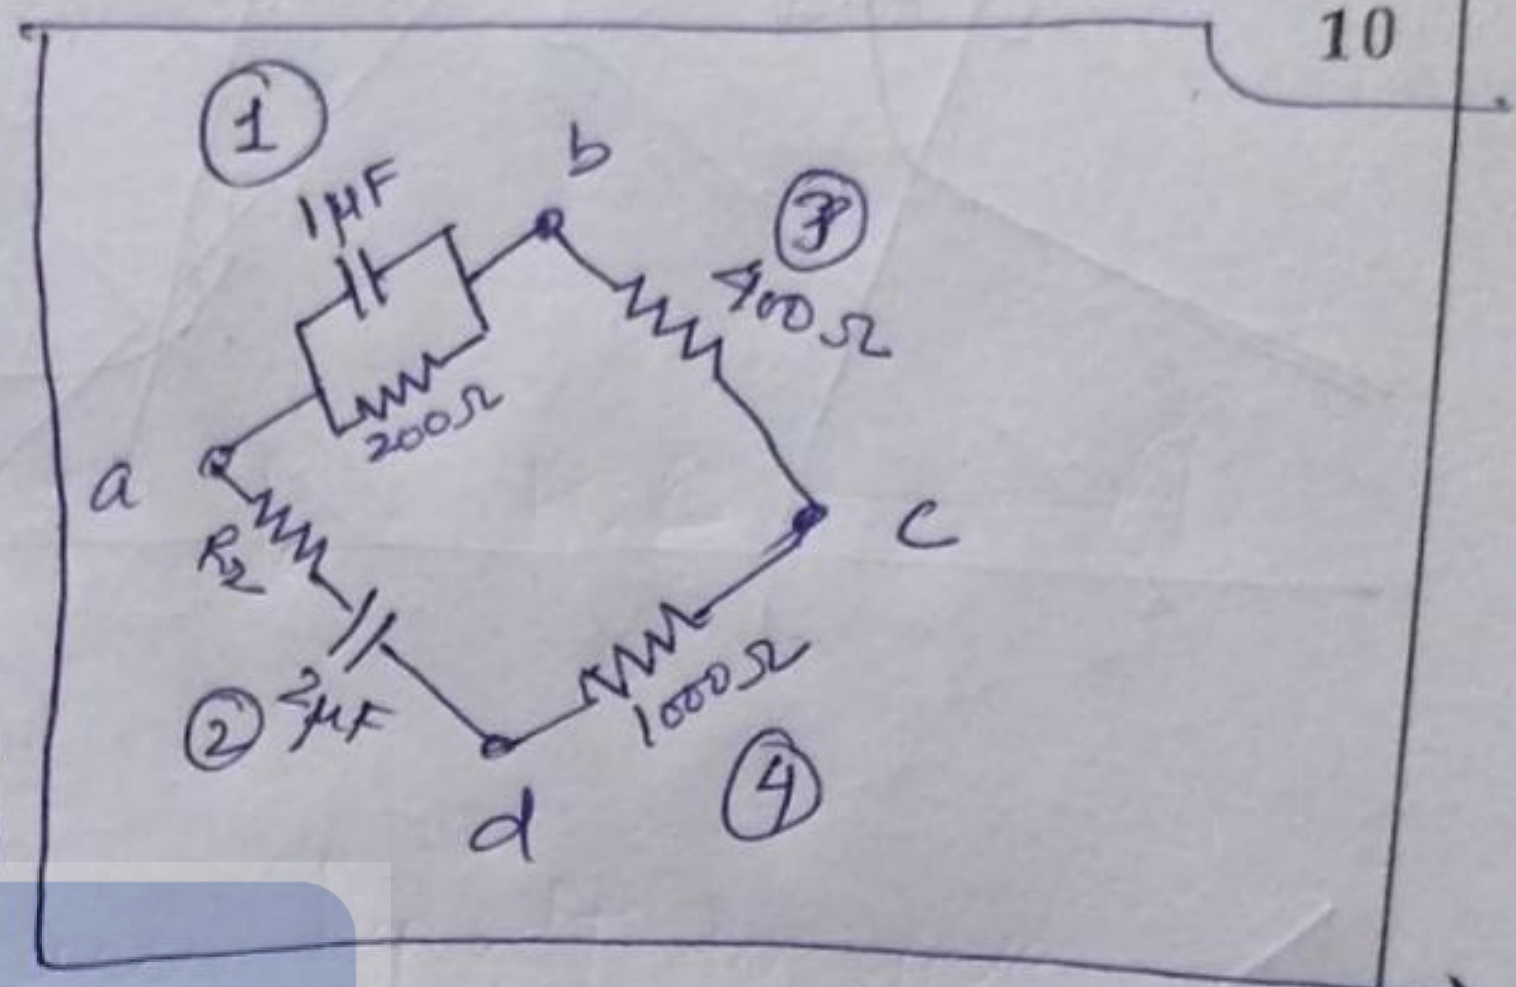 10
1
1μF
b
3
400Ω
200Ω
a
R2
c
2
2μF
1000Ω
4
d